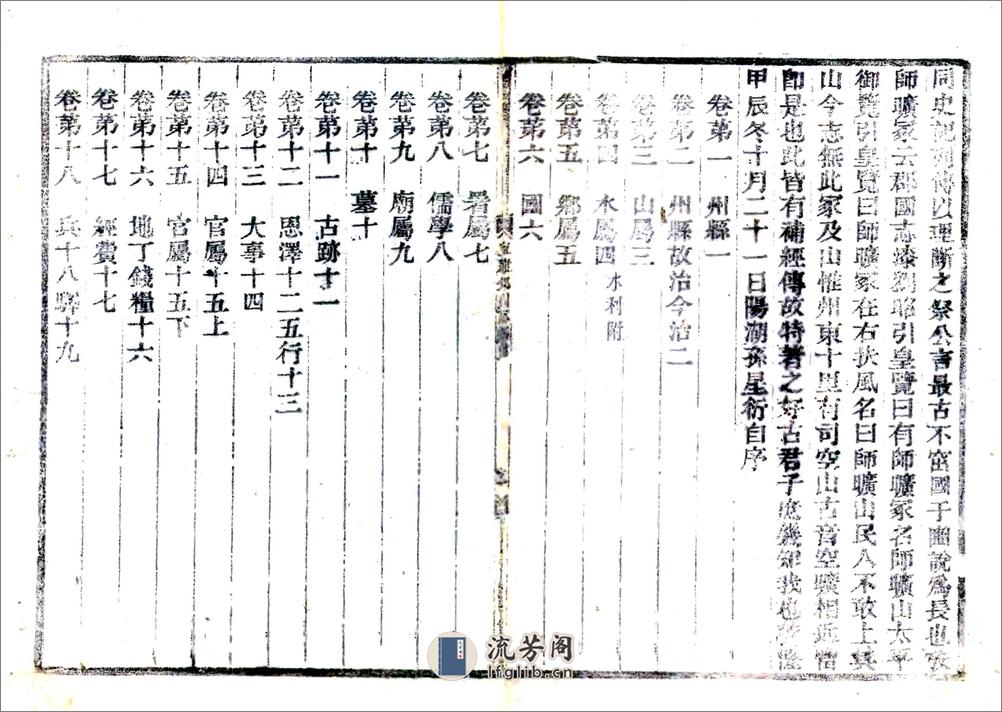 同史記列傳以理斷之祭公言最古不窋國于豳說爲長也故
師曠冢云郡國志漆劉昭引皇覽曰有師曠冢名師曠山太平
御覽引皇覽曰師曠冢在右扶風名曰師曠山民人不敢上其
山今志無此冢及山惟州東十里有司空山古音空曠相近當
即是也此皆有補經傳故特著之好古君子庶幾知我也乾隆
甲辰冬十月二十一日陽湖孫星衍自序
卷第一 州縣一
卷第二 州縣故治今治二
卷第三 山屬三
卷第四 水屬四 水利附
卷第五 鄉屬五
卷第六 國六
卷第七 署屬七
卷第八 儒學八
卷第九 廟屬九
卷第十 墓十
卷第十一 古跡十一
卷第十二 恩澤十二五行十三
卷第十三 大事十四
卷第十四 官屬十五上
卷第十五 官屬十五下
卷第十六 地丁錢糧十六
卷第十七 經費十七
卷第十八 兵十八驛十九
流芳阁
lfglib.cn